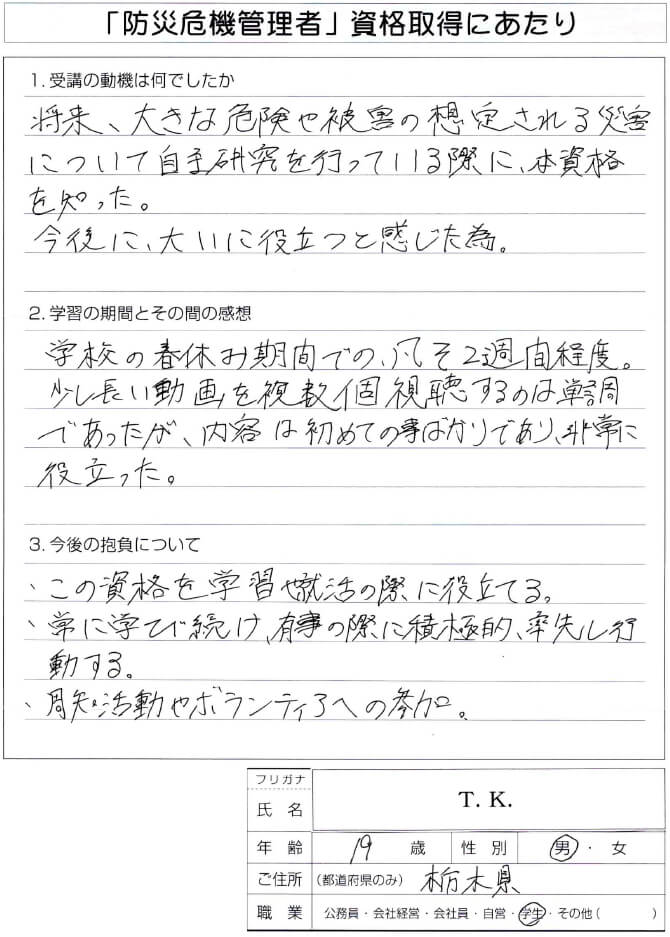 「防災危機管理者」資格取得にあたり
1. 受講の動機は何でしたか
将来、大きな危険や被害の想定される災害
について自主研究を行っている際に、本資格
を知った。
今後に、大いに役立つと感じた為。
2. 学習の期間とその間の感想
学校の春休み期間での、凡そ2週間程度。
少し長い動画を複数個視聴するのは
であったが、内容は初めての事ばかりであり、非常に
役立った。
3. 今後の抱負について
、この資格を学習や就活の際に役立てる。
、常に学び続け、有事の際に積極的、率先し行
動する。
、周知活動やボランティアへの参加。
フリガナ
氏名 T. K.
年齢 19 歳 性別 男・女
ご住所 (都道府県のみ) 栃木県
職業 公務員・会社経営・会社員・自営・学生・その他( )